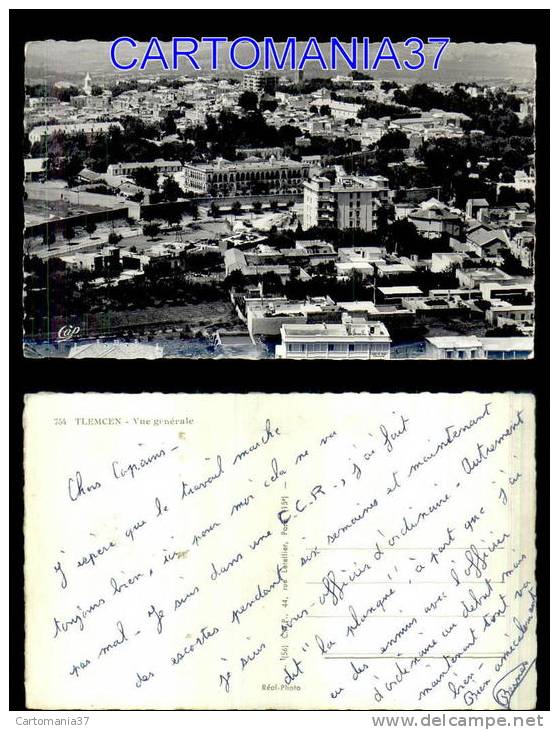 CARTOMANIA37
Cap
754 TLEMCEN - Vue générale
Chers Copains -
J'espère que le travail marche
toujours bien, ici pour moi cela ne va
pas mal - Je suis dans une C.C.R., j'ai fait
des escortes pendant six semaines et maintenant
je suis sous-officier d'ordinaire - Autrement
dit "la planque", à part que j'ai
eu des ennuis avec l'officier
d'ordinaire au début mais
maintenant tout va
bien -
Bien amicalement
(56) C.A.P., 44, rue Letellier, Paris (15e) -
Réal-Photo
Cartomania37